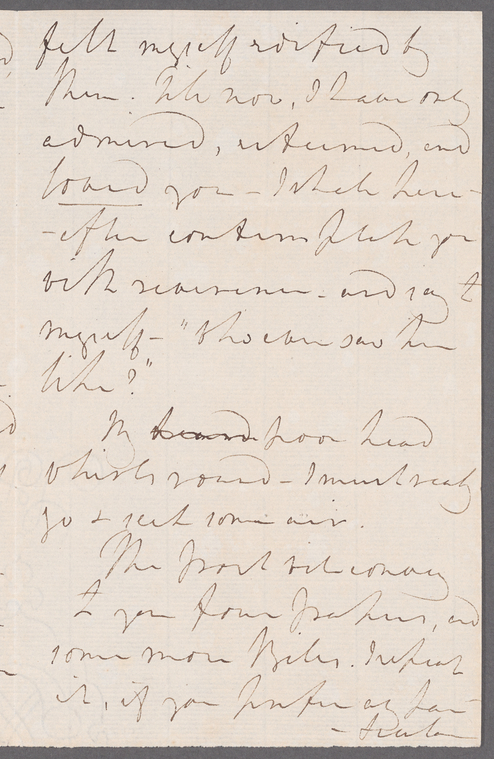 felt myself edified by
them. Till now, I have only
admired, esteemed, and
loved you - I shall here-
-after contemplate you
with reverence - and say to
myself - "Who ever saw the
like?"
My poor head
whirls round - I must really
go & seek some air.
The post will convey
to you four , and
some more Bibles. I repeat
it, if you prefer any par-
-ticular